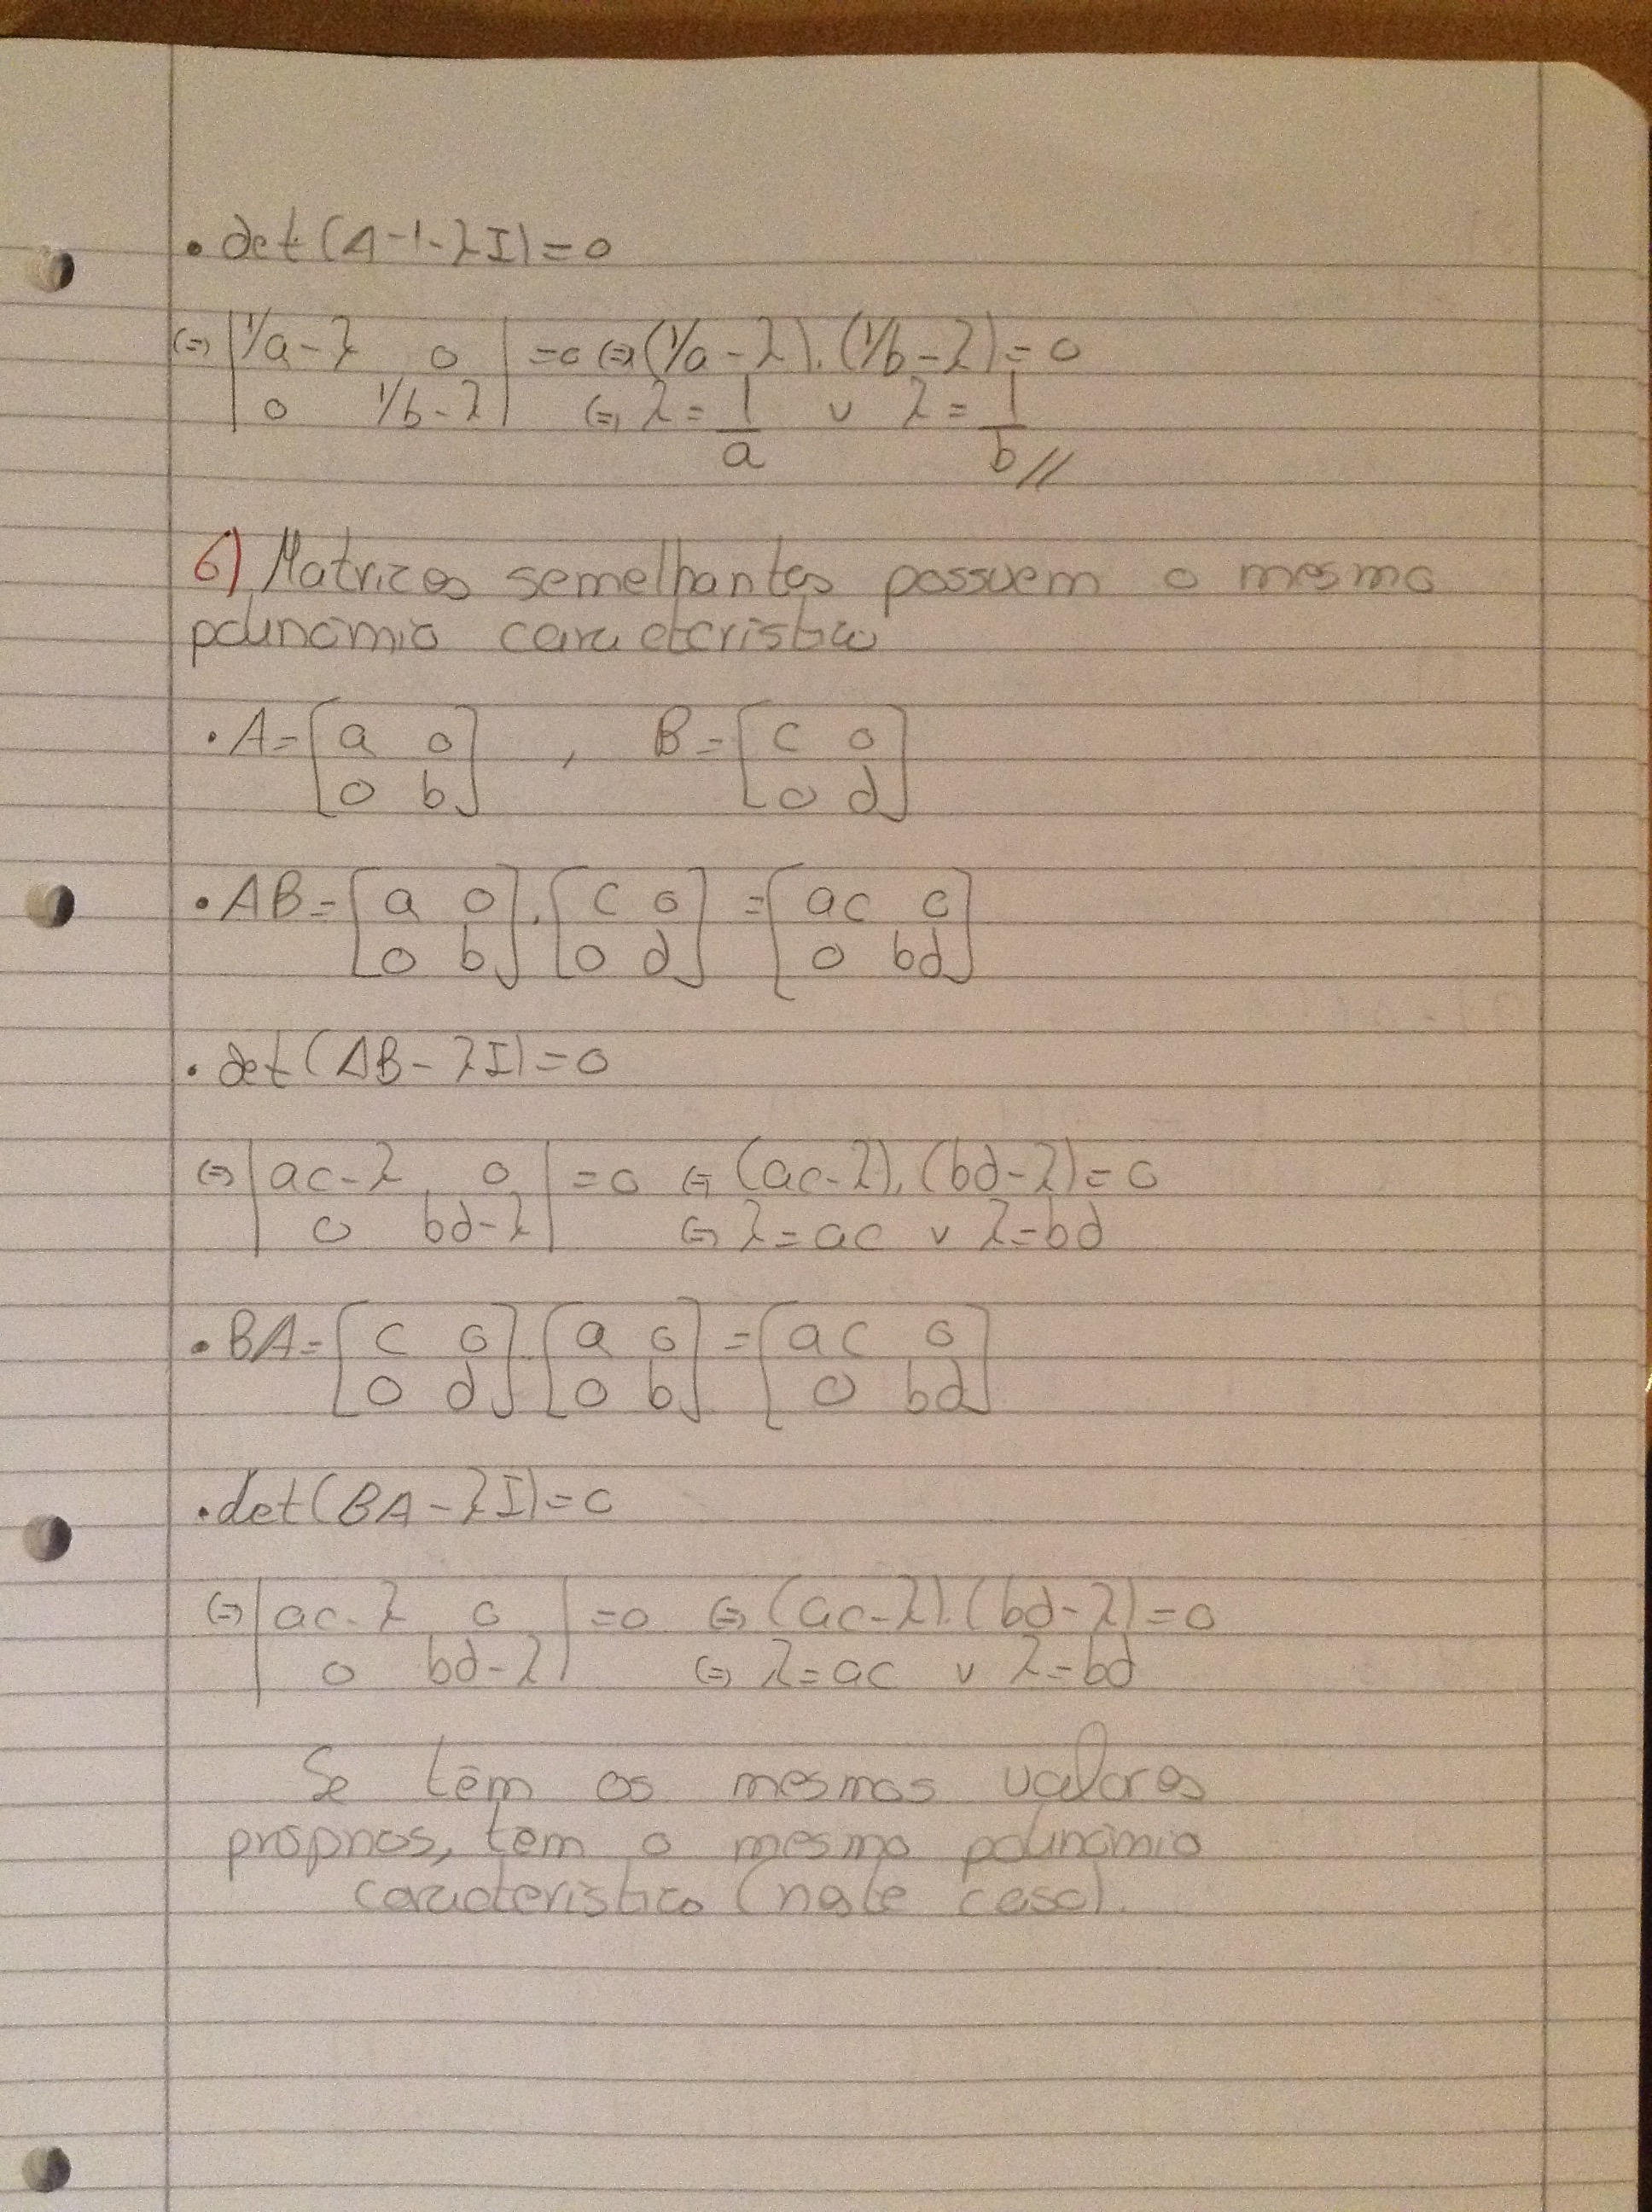 • det(A-1-λI)=0
(=) |1/a-λ 0| =0 (=) (1/a-λ).(1/b-λ)=0
|0 1/b-λ| (=) λ=1/a v λ=1/b //
6) Matrizes semelhantes possuem o mesmo
polinómio característico
• A=[a 0 , B=[c 0
0 b] 0 d]
• AB=[a 0 . [c 0 =[ac 0
0 b] 0 d] 0 bd]
• det(AB-λI)=0
(=) |ac-λ 0| =0 (=) (ac-λ).(bd-λ)=0
|0 bd-λ| (=) λ=ac v λ=bd
• BA=[c 0 . [a 0 =[ac 0
0 d] 0 b] 0 bd]
• det(BA-λI)=0
(=) |ac-λ 0| =0 (=) (ac-λ).(bd-λ)=0
|0 bd-λ| (=) λ=ac v λ=bd
Se têm os mesmos valores
próprios, têm o mesmo polinómio
característico (neste caso).